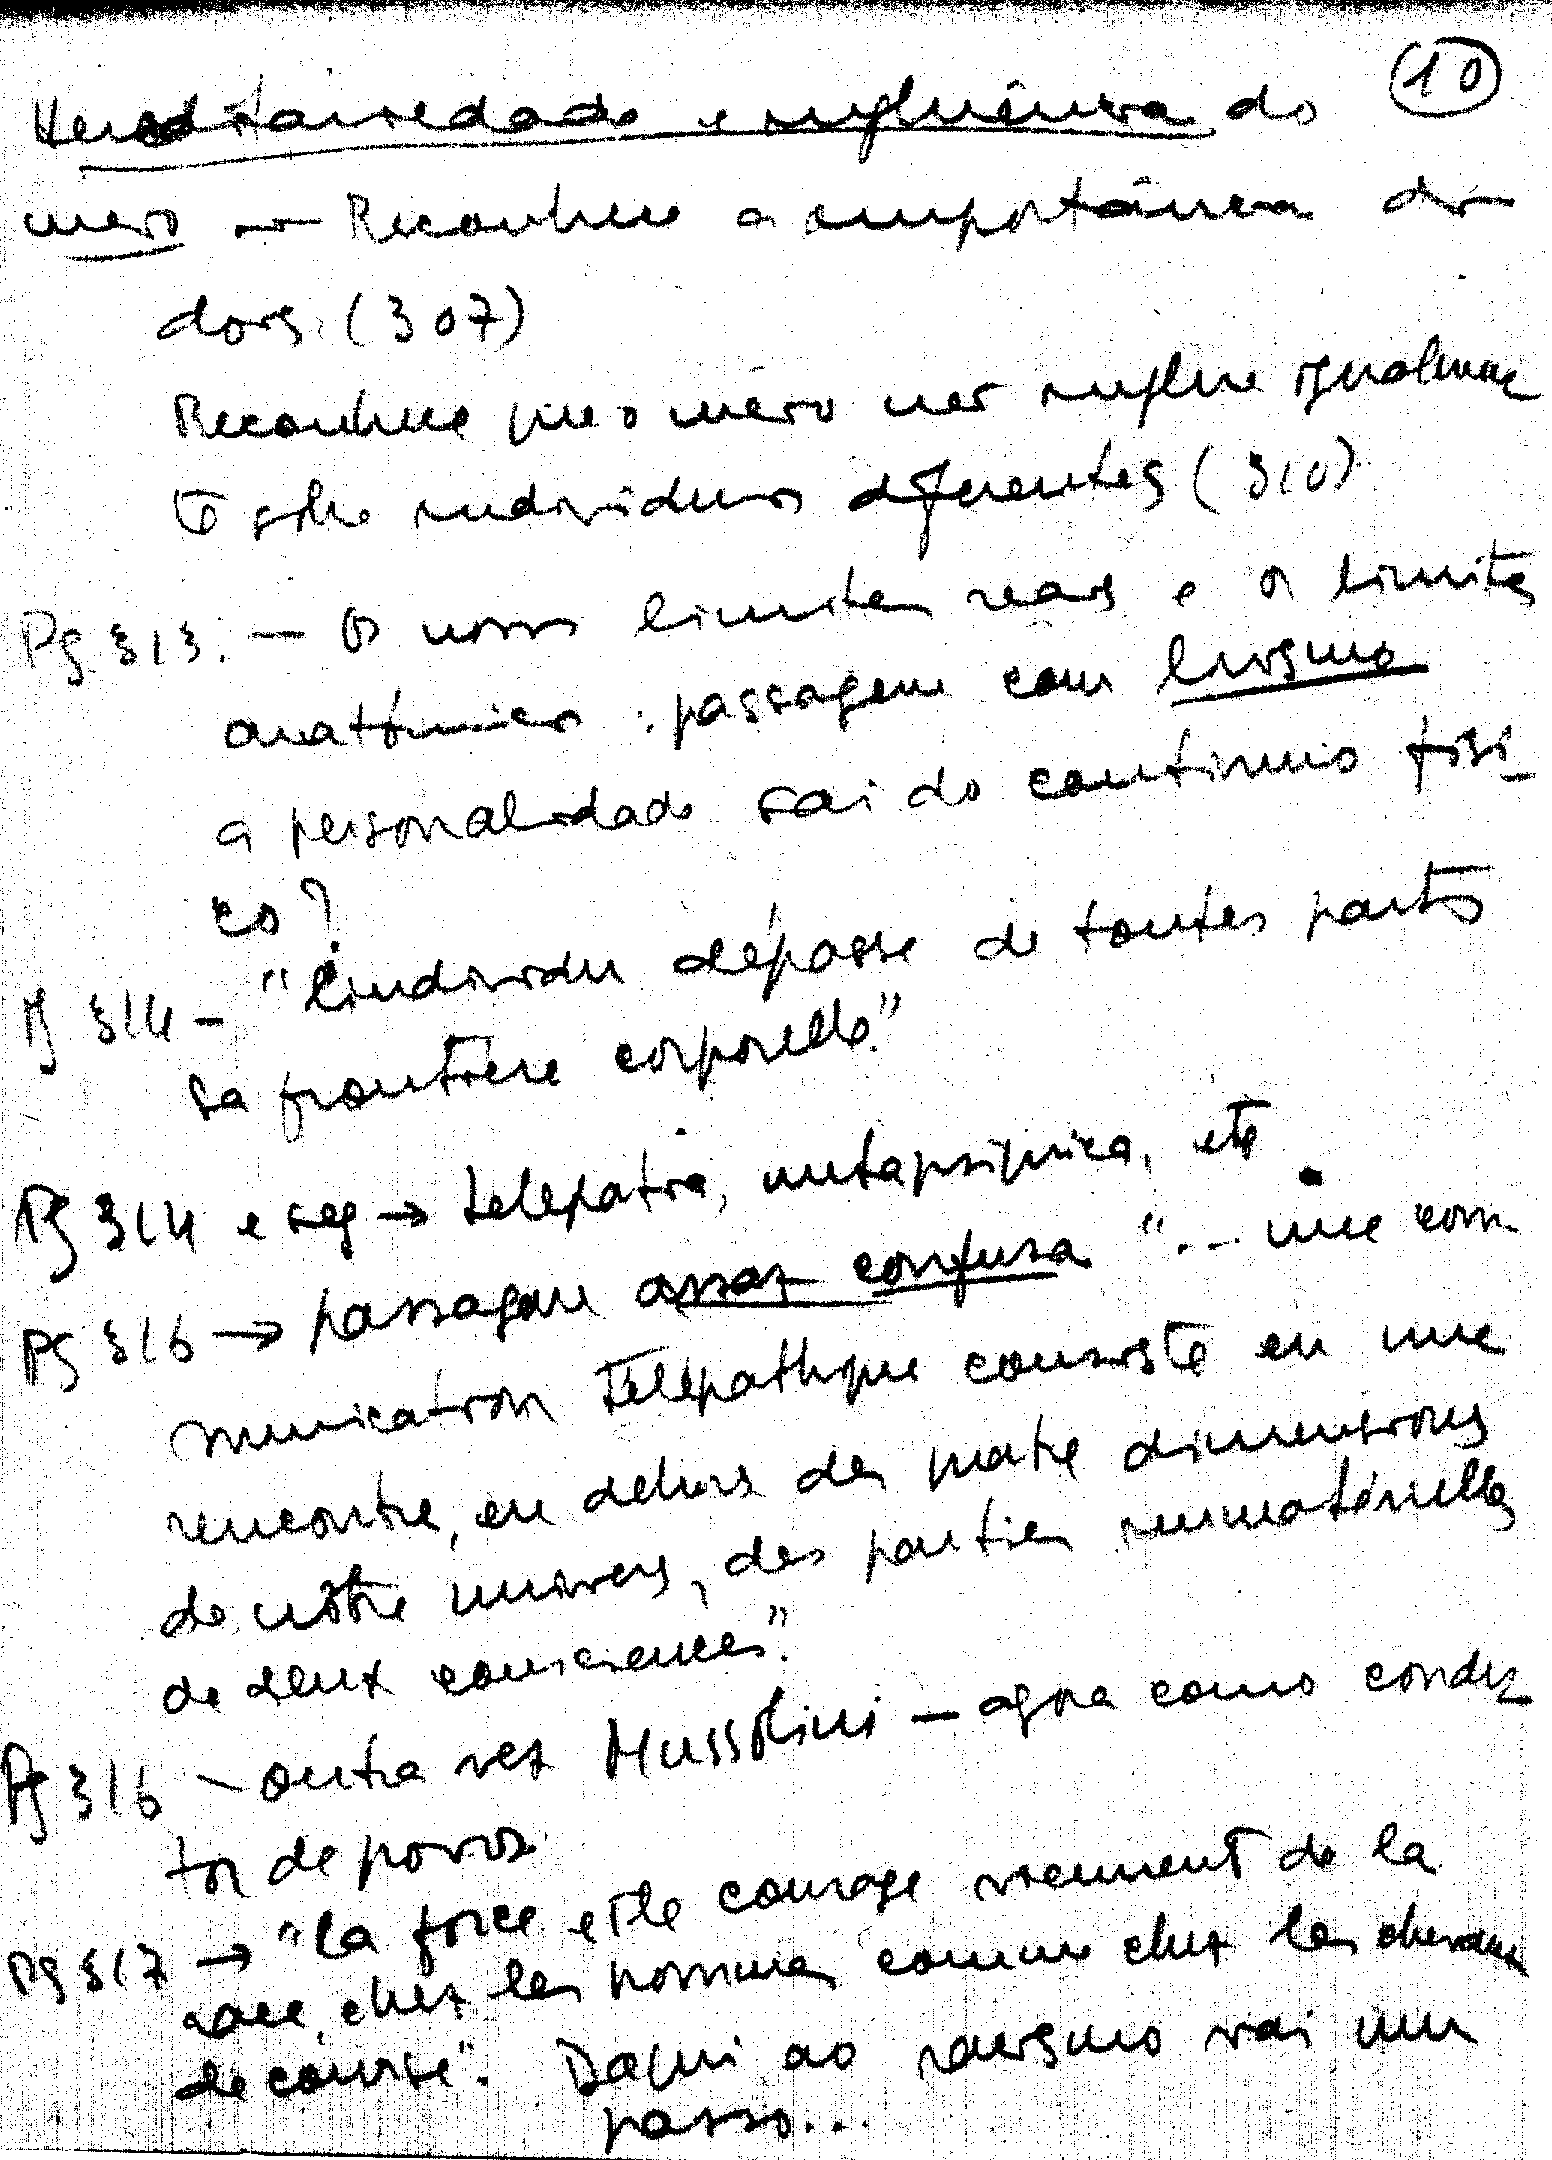 10
Hereditariedade e influência do
meio — Reconhece a importância do
dois (307)
Reconhece que o meio não influe igualmen
te sobre individuos diferentes (310)
Pg 313. — Os nossos limites reais e os limites
anatómicos: passagem com lirismo
a personalidade sai do continuo fisi-
co?
Pg 314 — "L'individu dépasse de toutes parts
sa frontière corporelle."
Pg 314 e seg → telepatia, metapsiquica, etc
Pg 316 → passagem assaz confusa "... une com
munication télépathique consiste en une
rencontre, en dehors des quatre dimensions
de nôtre univers, des parties immatérielles
de deux consciences".
Pg 316 — outra vez Mussolini — agora como condu
tor de povos
Pg 317 → "la force et le courage viennent de la
race, chez les hommes comme chez les chevaux
de course". Daqui ao racismo vai um
passo...